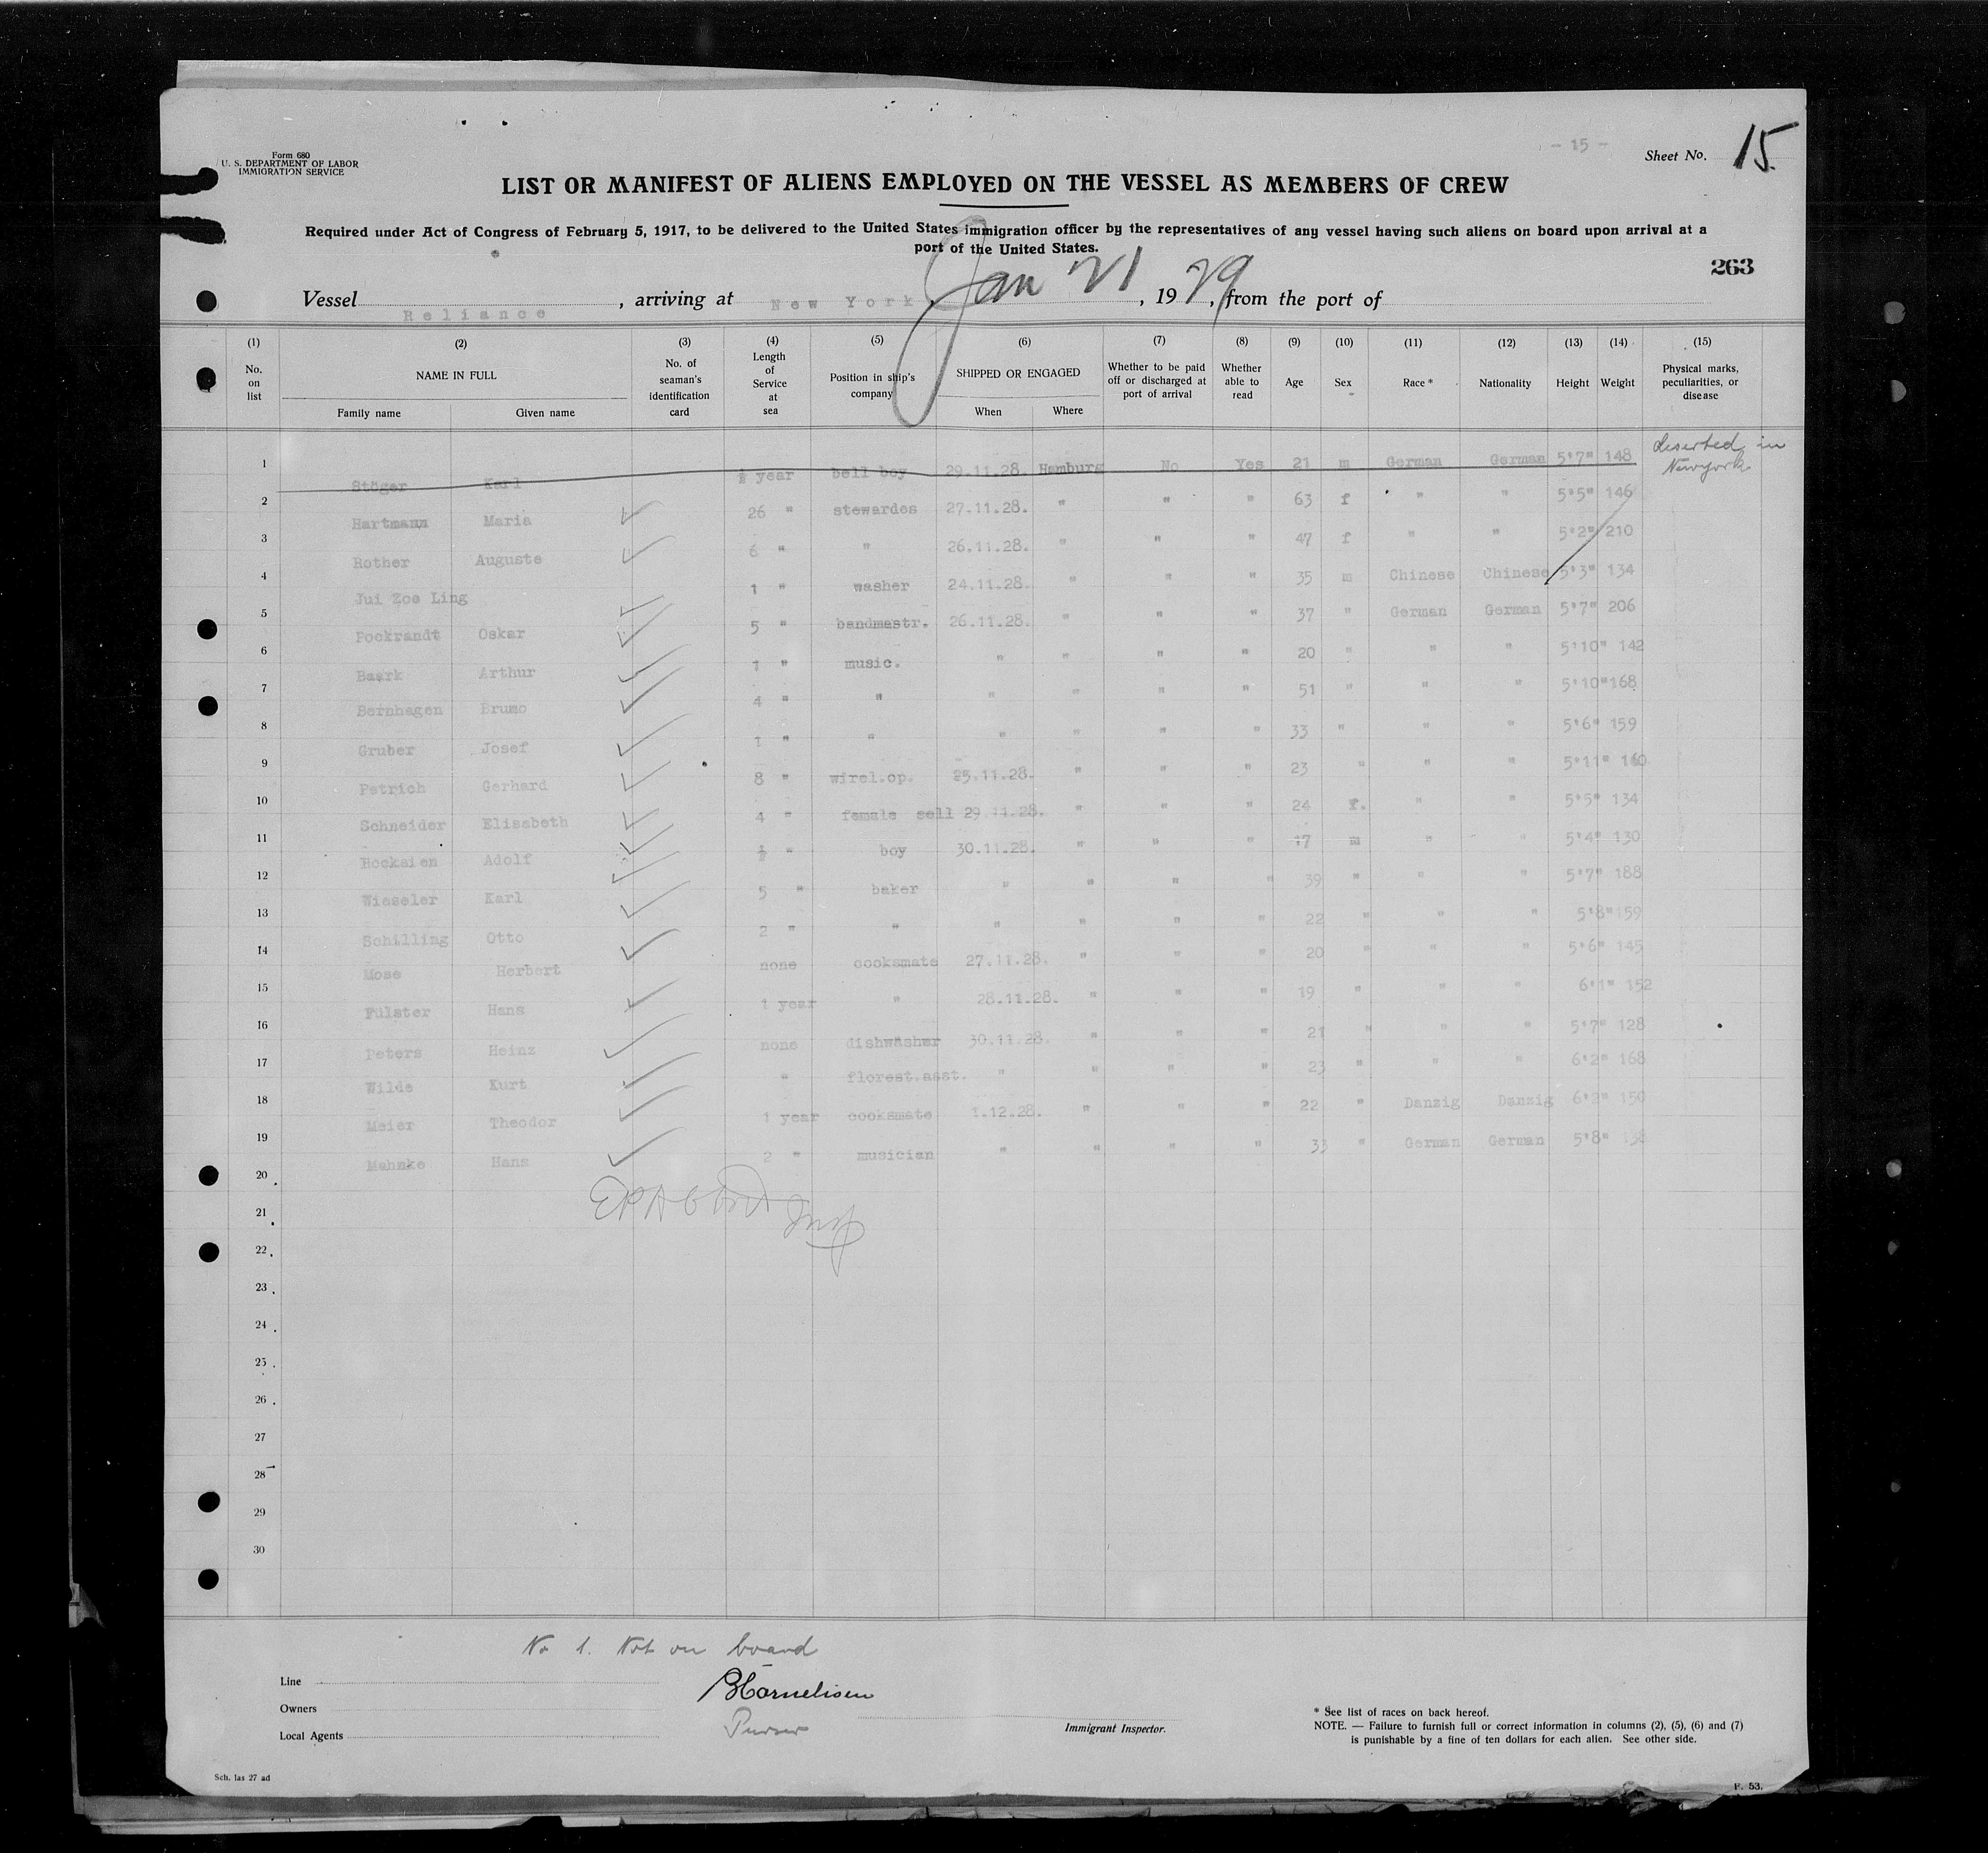 Form 680
U. S. DEPARTMENT OF LABOR
IMMIGRATION SERVICE
- 15 -
Sheet No. 15.
LIST OR MANIFEST OF ALIENS EMPLOYED ON THE VESSEL AS MEMBERS OF CREW
Required under Act of Congress of February 5, 1917, to be delivered to the United States immigration officer by the representatives of any vessel having such aliens on board upon arrival at a
port of the United States.
263
Vessel Reliance, arriving at New York, Jan 21, 1929, from the port of
(1) (2) (3) (4) (5) (6) (7) (8) (9) (10) (11) (12) (13) (14) (15)
No. on list NAME IN FULL Family name Given name No. of seaman's identification card Length of Service at sea Position in ship's company SHIPPED OR ENGAGED When Where Whether to be paid off or discharged at port of arrival Whether able to read Age Sex Race * Nationality Height Weight Physical marks, peculiarities, or disease
1 Stöger Karl ½ year bell boy 29.11.28. Hamburg No Yes 21 m German German 5'7" 148 deserted in New york
2 Hartmann Maria 26 " stewardes 27.11.28. " " " 63 f " " 5'5" 146
3 Rother Auguste 6 " " 26.11.28. " " " 47 f " " 5'2" 210
4 Jui Zoe Ling 1 " washer 24.11.28. " " " 35 m Chinese Chinese 5'3" 134
5 Pockrandt Oskar 5 " bandmastr. 26.11.28. " " " 37 " German German 5'7" 206
6 Baark Arthur 1 " music. " " " " 20 " " " 5'10" 142
7 Bernhagen Bruno 4 " " " " " " 51 " " " 5'10" 168
8 Gruber Josef 1 " " " " " " 33 " " " 5'6" 159
9 Petrich Gerhard 8 " wirel.op. 25.11.28. " " " 23 " " " 5'11" 160
10 Schneider Elisabeth 4 " female sell 29.11.28. " " " 24 f. " " 5'5" 134
11 Hocksien Adolf ½ " boy 30.11.28. " " " 17 m " " 5'4" 130
12 Wieseler Karl 5 " baker " " " " 39 " " " 5'7" 188
13 Schilling Otto 2 " " " " " " 22 " " " 5'8" 159
14 Mose Herbert none cooksmate 27.11.28. " " " 20 " " " 5'6" 145
15 Fülster Hans 1 year " 28.11.28. " " " 19 " " " 6'1" 152
16 Peters Heinz none dishwasher 30.11.28. " " " 21 " " " 5'7" 128
17 Wilde Kurt " florest.asst. " " " " 23 " " " 6'2" 168
18 Meier Theodor 1 year cooksmate 1.12.28. " " " 22 " Danzig Danzig 6'2" 150
19 Mahnke Hans 2 " musician " " " " 33 " German German 5'8"
20
21
22
23
24
25
26
27
28
29
30
No 1. Not on board
Line
Owners
Local Agents
BCornelisen
Purser
Immigrant Inspector.
* See list of races on back hereof.
NOTE. — Failure to furnish full or correct information in columns (2), (5), (6) and (7)
is punishable by a fine of ten dollars for each alien. See other side.
Sch. las 27 ad
F. 53.